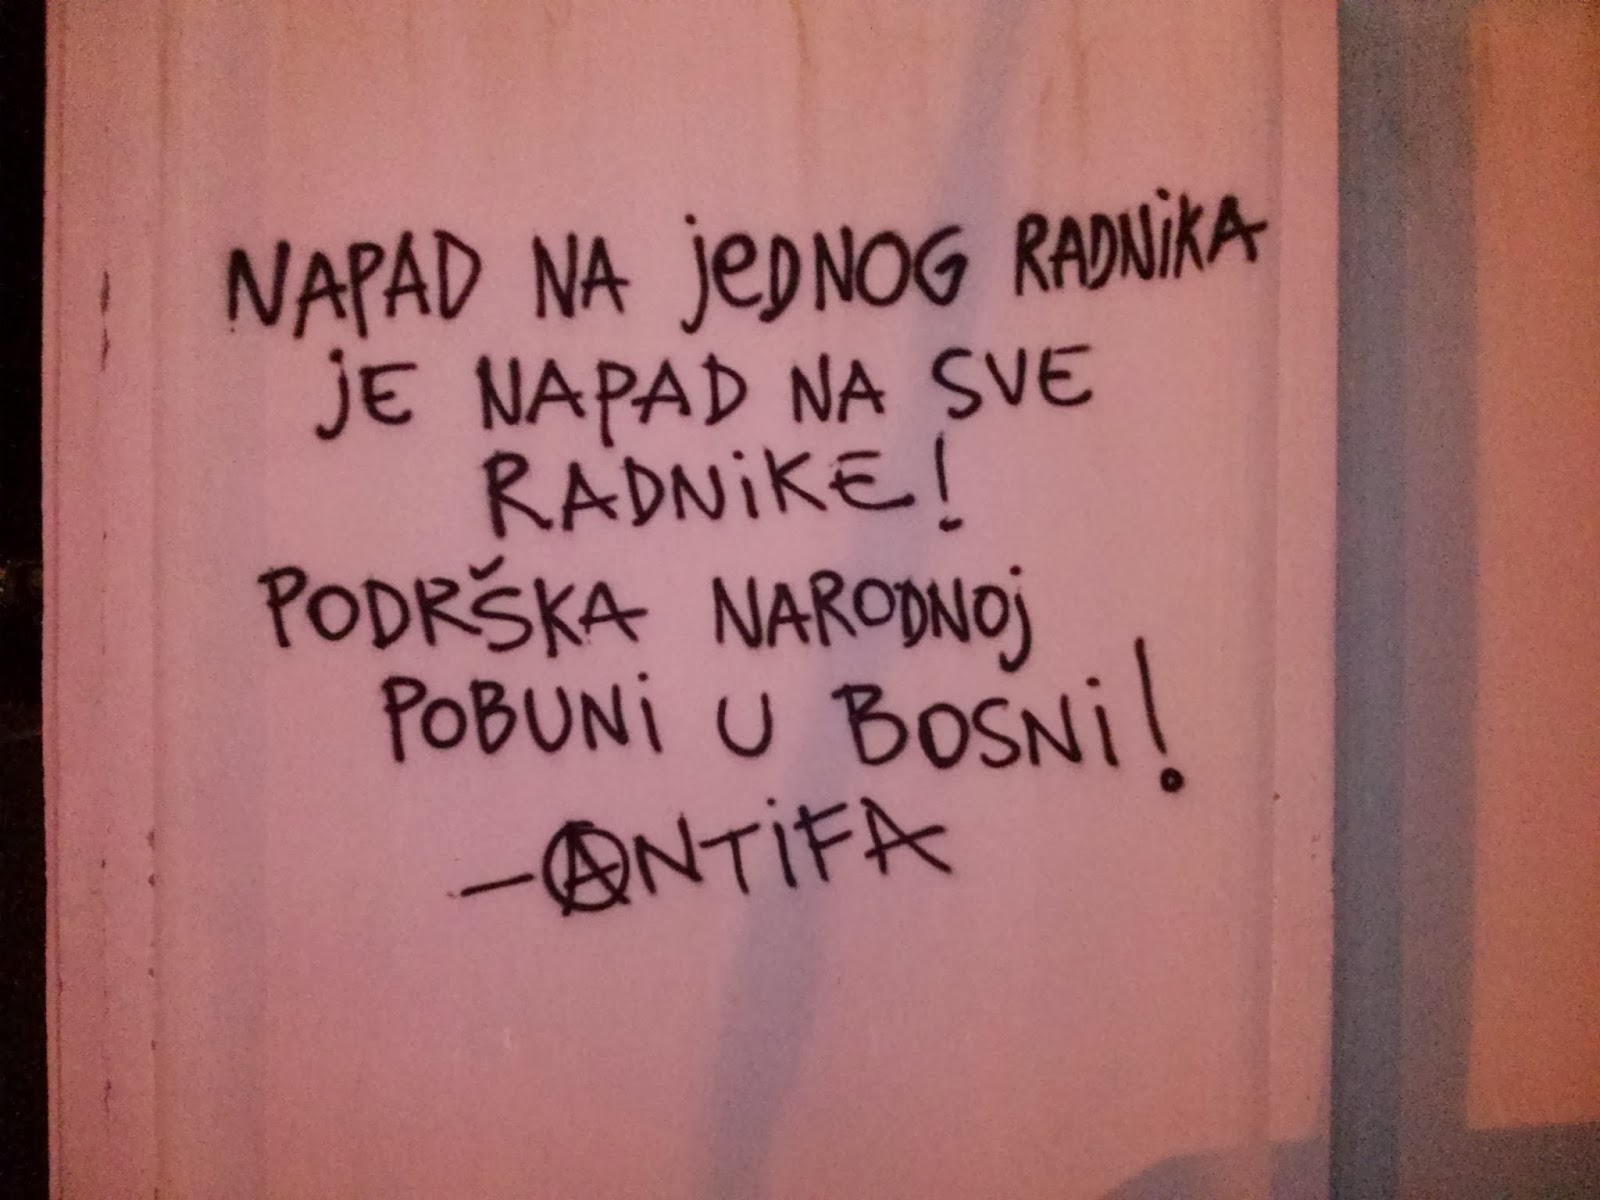 NAPAD NA jeDNOG RADNiKA
jE NAPAD NA SVE
RADNiKE!
PODRŠKA NARODNOj
POBUNi U BOSNi!
-ANTiFA